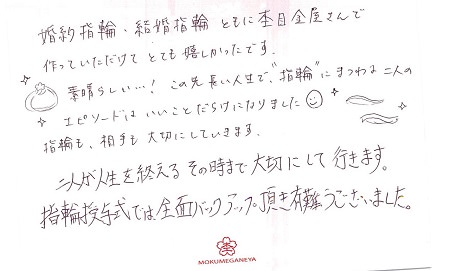 婚約指輪・結婚指輪 ともに本目金屋さんで
作っていただけて とても嬉しかったです。
素晴らしい…! この先長い人生で、"指輪"にまつわる二人の
エピソードは いいことだらけになりました
指輪も、相手も大切にしていきます。
二人が人生を終える その時まで大切にして 行きます。
指輪授与式では、全面バックアップ頂き有難うございました。
MOKUMEGANEYA